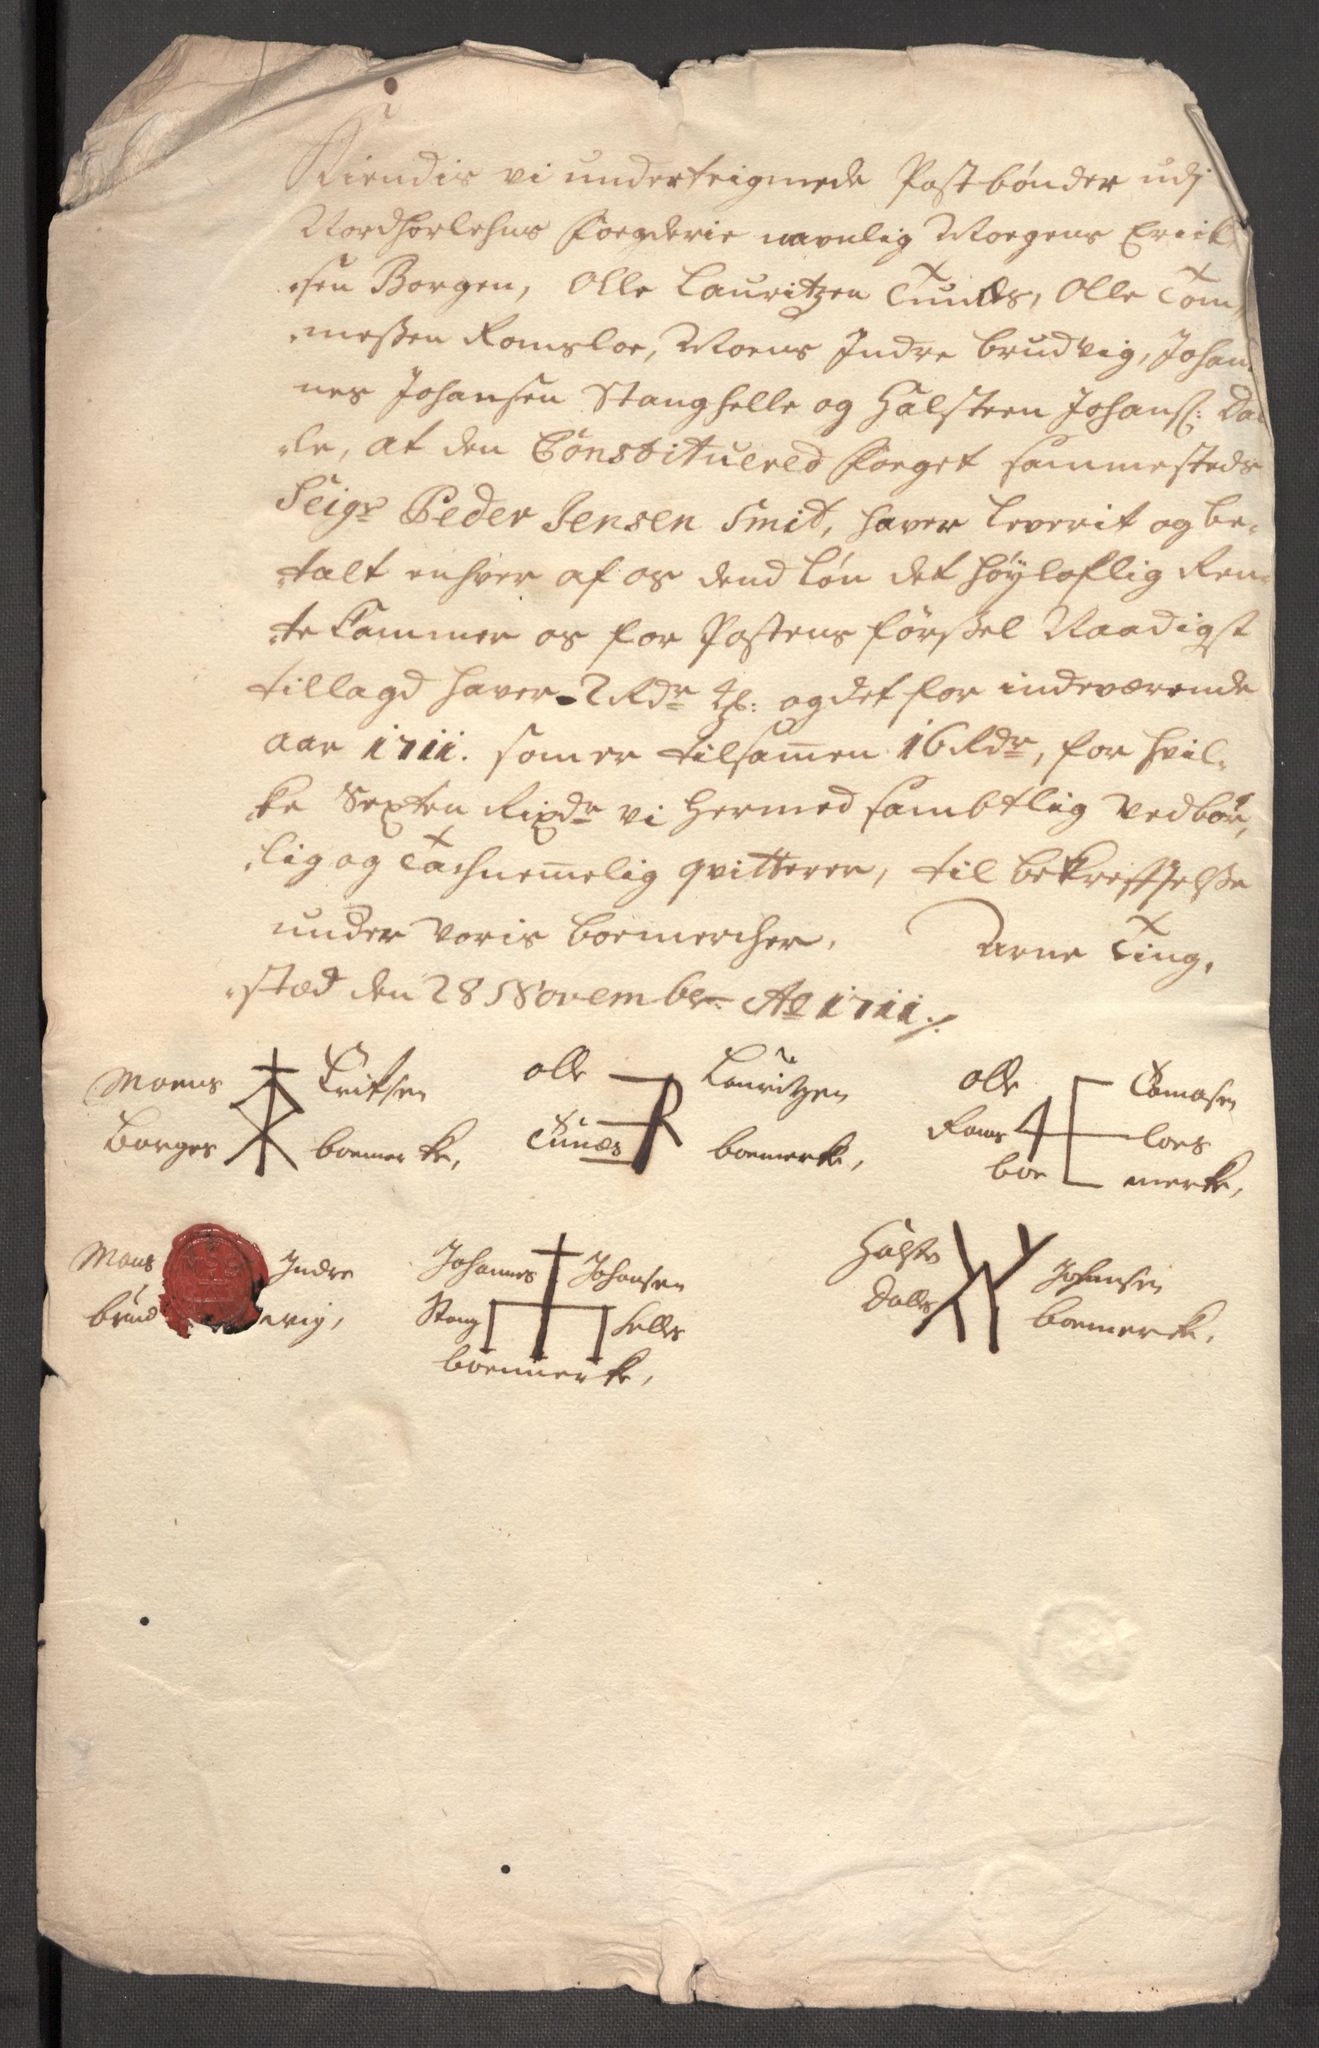 Kiendis vi underteignede Postbønder udj
Nordhorlehns Foegderie navnlig Moegens Erick¬
sen Borgen, Olle Lauritzen Tunæs, Olle Tom¬
meßen Romsloe, Moens Indre Brudvig, Johan¬
nes Johansen Stanghelle og Halsteen Johanß: Da¬
le, at den Constituered Foeget sammesteds
Seigr Peder Jensen Smit, haver leverit og be¬
talt enhver af os dend løn det höyloflig Ren¬
te Cammer os for Postens förßel Naadigst
tillagd haver 2 Rdr og det for indeværende
aar 1711. som er tilsam̄en 16 Rdr, for hvil¬
ke Sexten Rixdr vi hermed sambtlig vedbør¬
lig og Tachnem̄elig qvitterer, til bekreftelße
under voris boemercher. Arne Ting¬
stæd den 28 Novembr Ao 1711 ./.
Moens Eriksen
Borges boemerke,
olle Lauritzen
Tunæs boemerke,
olle Tomasen
Roms loes
boe merke,
Mons Indre
brud vig,
Johannes Johansen
Stang helle
boemerke,
Halsten Johansen
Dalle boemerke,